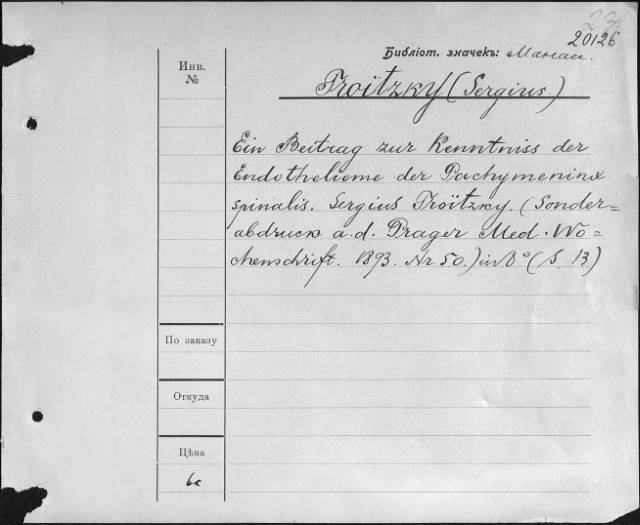 20126
Библіот. значекъ:
Инв.
№
Troïtzky (Sergius.)
Ein Beitrag zur Kenntniss der
Endotheliome der Pachymeninx
spinalis. Sergius Troïtzky. (Sonder=
abdruck a. d. Prager Med. Wo=
chenschrift. 1893. Nr 50.) in 8° (S. 13)
По заказу
Откуда
Цѣна